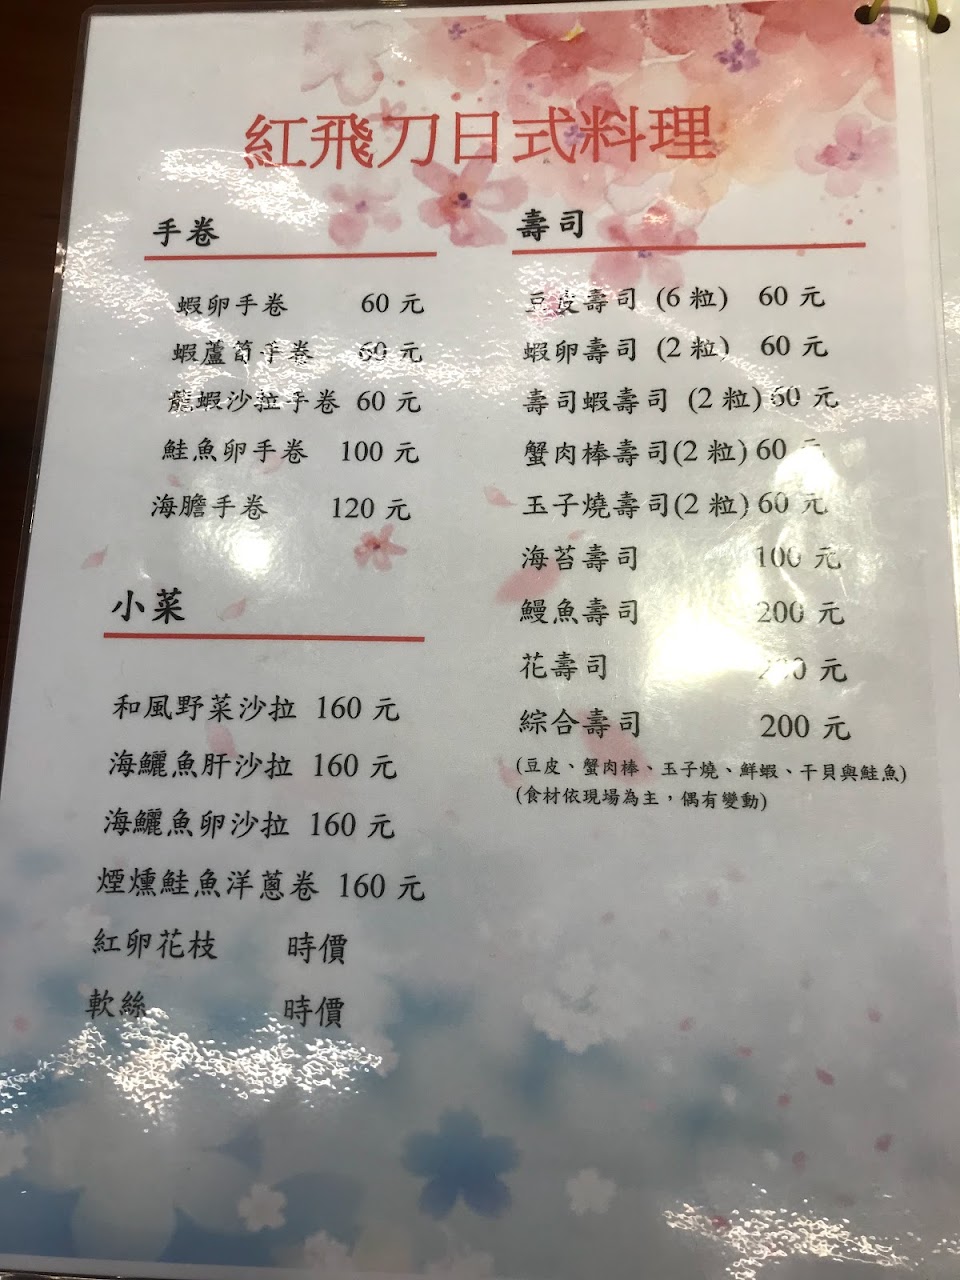 紅飛刀日式料理
手卷
蝦卵手卷 60 元
蝦蘆筍手卷 60 元
龍蝦沙拉手卷 60 元
鮭魚卵手卷 100 元
海膽手卷 120 元
小菜
和風野菜沙拉 160 元
海鱺魚肝沙拉 160 元
海鱺魚卵沙拉 160 元
煙燻鮭魚洋蔥卷 160 元
紅卵花枝 時價
軟絲 時價
壽司
豆皮壽司 (6 粒) 60 元
蝦卵壽司 (2 粒) 60 元
壽司蝦壽司 (2 粒) 60 元
蟹肉棒壽司(2 粒) 60 元
玉子燒壽司(2 粒) 60 元
海苔壽司 100 元
鰻魚壽司 200 元
花壽司 元
綜合壽司 200 元
(豆皮、蟹肉棒、玉子燒、鮮蝦、干貝與鮭魚)
(食材依現場為主，偶有變動)